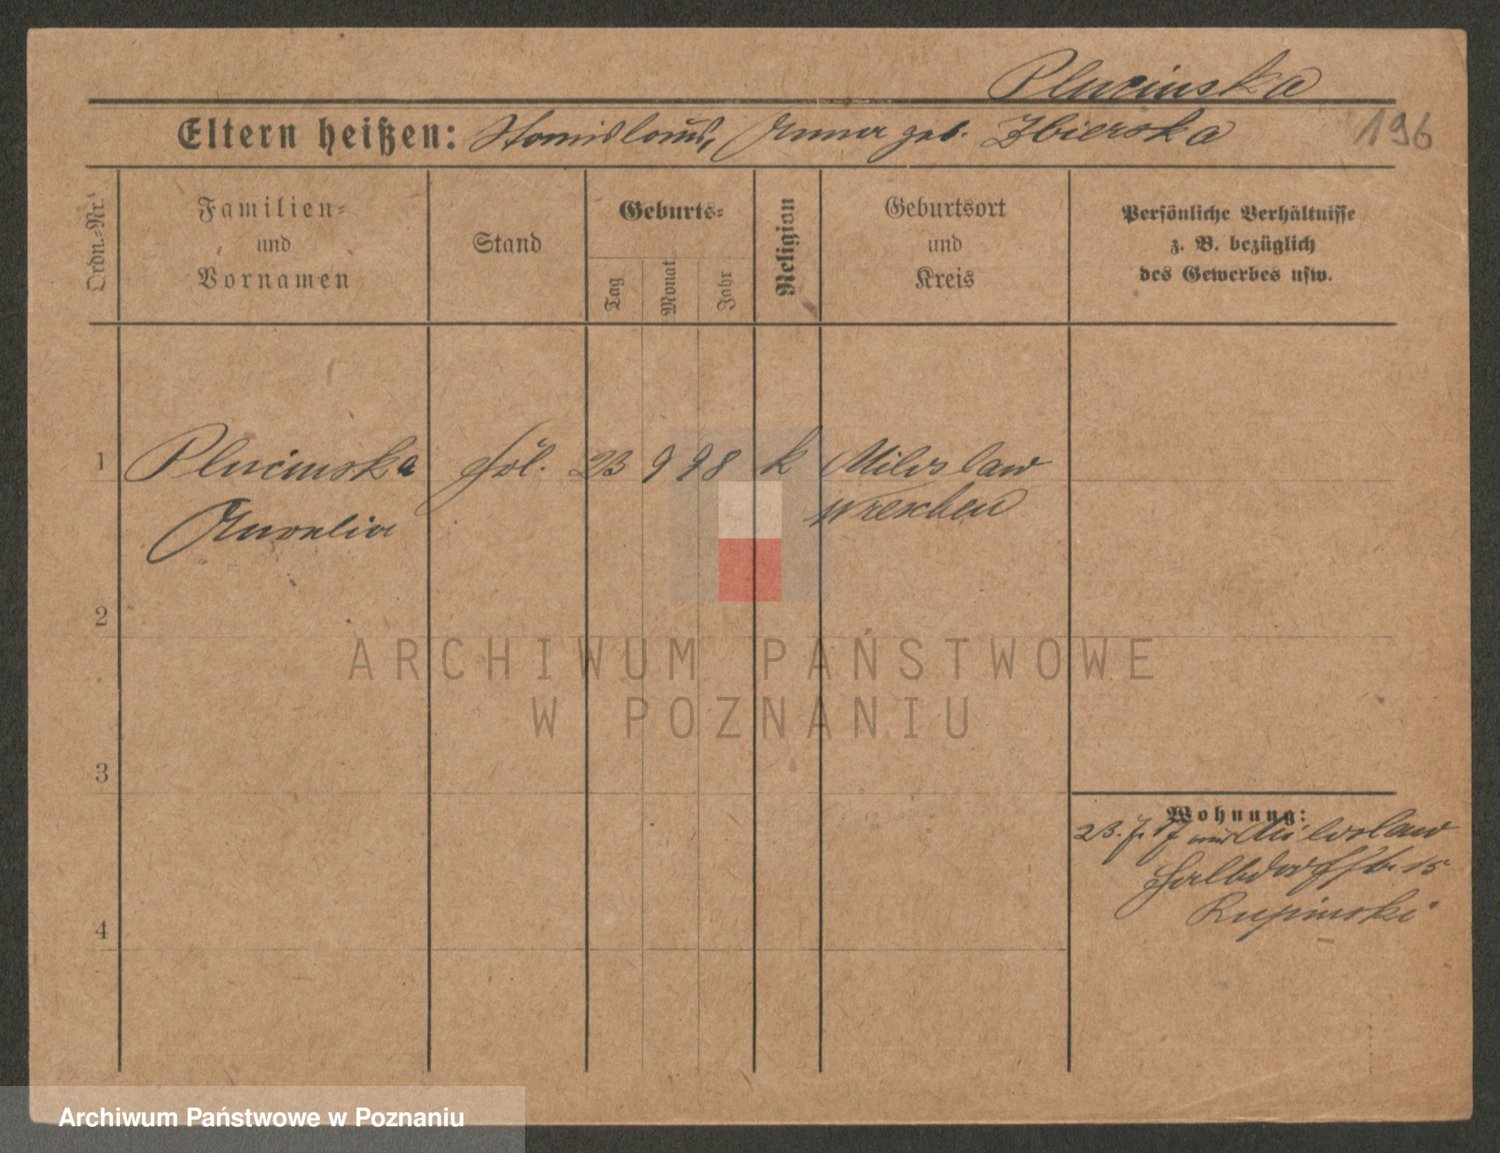 Plucinska
Eltern heißen: Stanislaus, Anna geb. Zbierska
196
Ordn.-Nr.
Familien-
und
Vornamen
Stand
Geburts-
Tag
Monat
Jahr
Religion
Geburtsort
und
Kreis
Persönliche Verhältnisse
z. B. bezüglich
des Gewerbes usw.
1 Plucinska Frl. 23 9 98 k Miloslaw
Aurelia Wreschen
2
3
4
Wohnung:
23. 7. 17 Miloslaw
Halbdorfstr. 15
ARCHIWUM PAŃSTWOWE
W POZNANIU
Archiwum Państwowe w Poznaniu